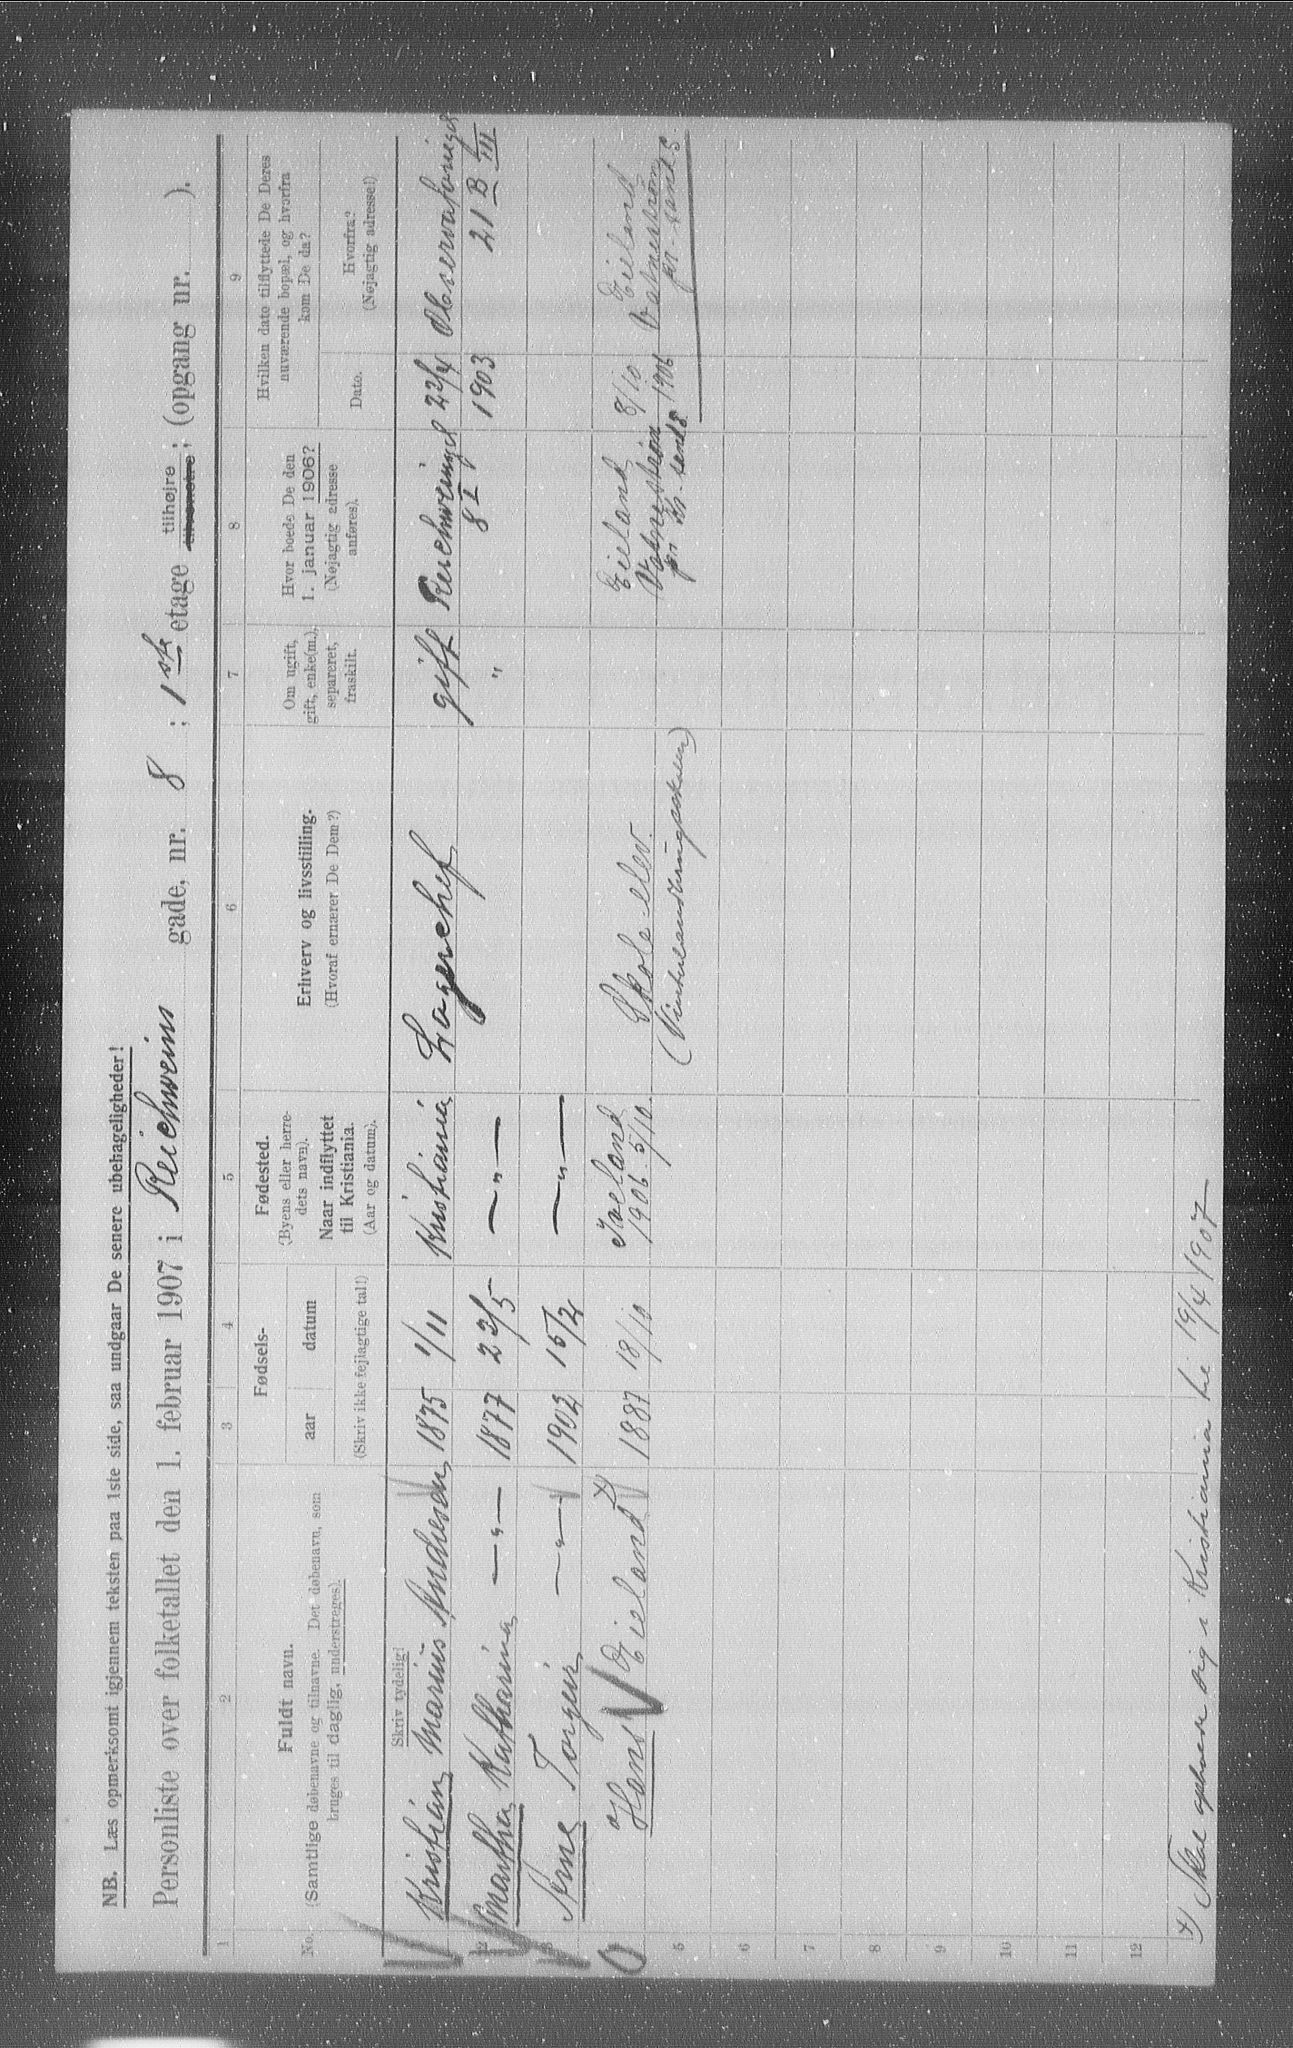 NB. Læs opmerksomt igjennem teksten paa 1ste side, saa undgaar De senere ubehageligheder!
Personliste over folketallet den 1. februar 1907 i Reichweins gade, nr. 8 ; 1ste etage tilhøjre tilvenstre ; (opgang nr. ).
1 2 3 4 5 6 7 8 9
No.
Fuldt navn.
(Samtlige døbenavne og tilnavne. Det døbenavn, som
bruges til daglig, understreges).
Fødsels-
aar datum
(Skriv ikke fejlagtige tal!)
Fødested.
(Byens eller herre-
dets navn).
Naar indflyttet
til Kristiania.
(Aar og datum).
Erhverv og livsstilling.
(Hvoraf ernærer De Dem?)
Om ugift,
gift, enke(m.),
separeret,
fraskilt.
Hvor boede De den
1. januar 1906?
(Nøjagtig adresse
anføres).
Hvilken dato tilflyttede De Deres
nuværende bopæl, og hvorfra
kom De da?
Dato.
Hvorfra?
(Nøjagtig adresse!)
Skriv tydelig!
Kristian Marius Andresen 1875 1/11 Kristiania Lagerchef gift Reichweinsgd 22/4
8 I 1903 21 B III
2 Martha Katharina —„— 1877 23/5 —„— "
3 Arne Torgeir —„— 1902 —„—
Hans Eieland x) 1887 18/10 Iveland Skole-elev. Eieland 8/10 Eieland
1906 5/10. Vatnestrøm 1906 Vatnestrøm
5
6
7
8
9
10
11
12
x) Skal opholde sig i Kristiania til 19/4 1907